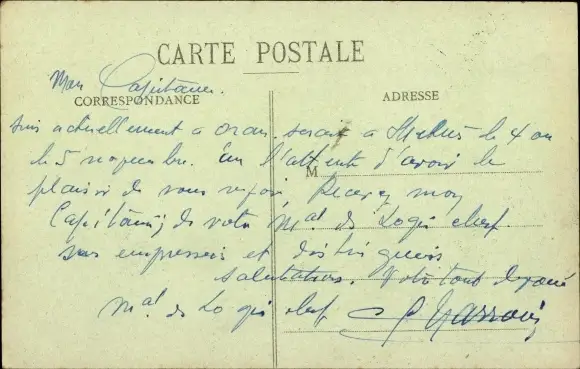 CARTE POSTALE
Mon Capitaine.
CORRESPONDANCE
ADRESSE
suis actuellement a oran. serai a le 4 ou
le 5 novembre. en l'attente d'avoir le
M
plaisir de vous revoir Recevez mon
Capitaine, de votre Mal de Logis chef.
ses empressées et distingués
salutations. Votre tout dévoué
Mal de Logis chef